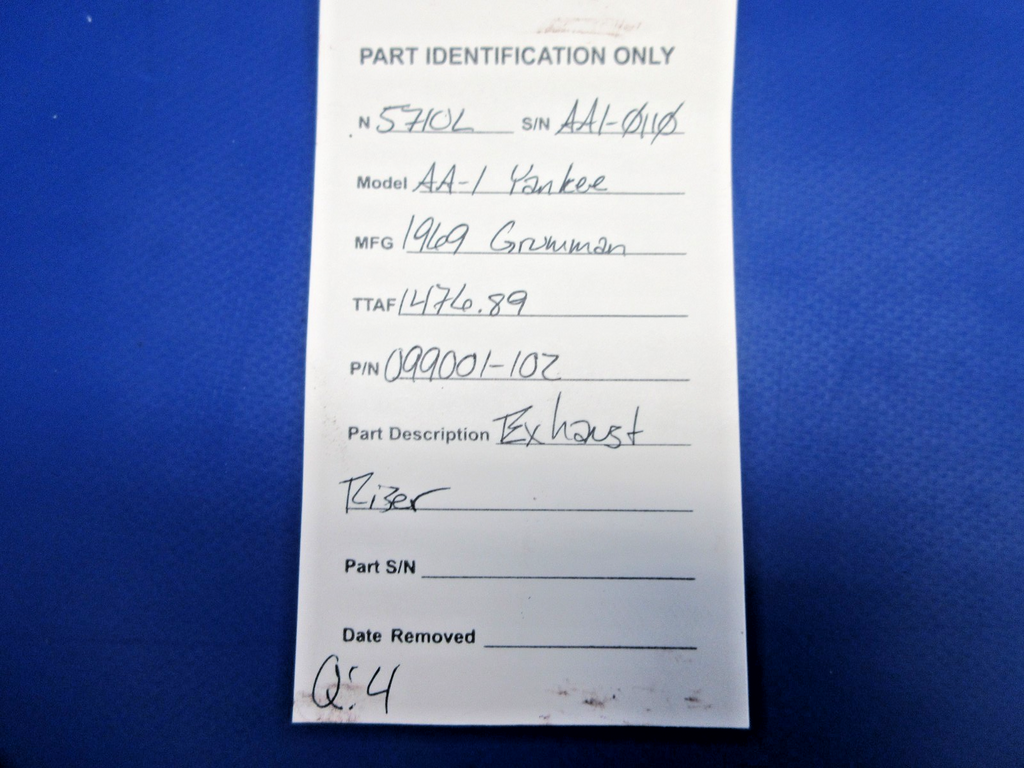 PART IDENTIFICATION ONLY
N 5710L S/N AA1-0110
Model AA-1 Yankee
MFG 1969 Grumman
TTAF 1476.89
P/N 099001-102
Part Description Exhaust
Rizer
Part S/N
Date Removed
Q:4